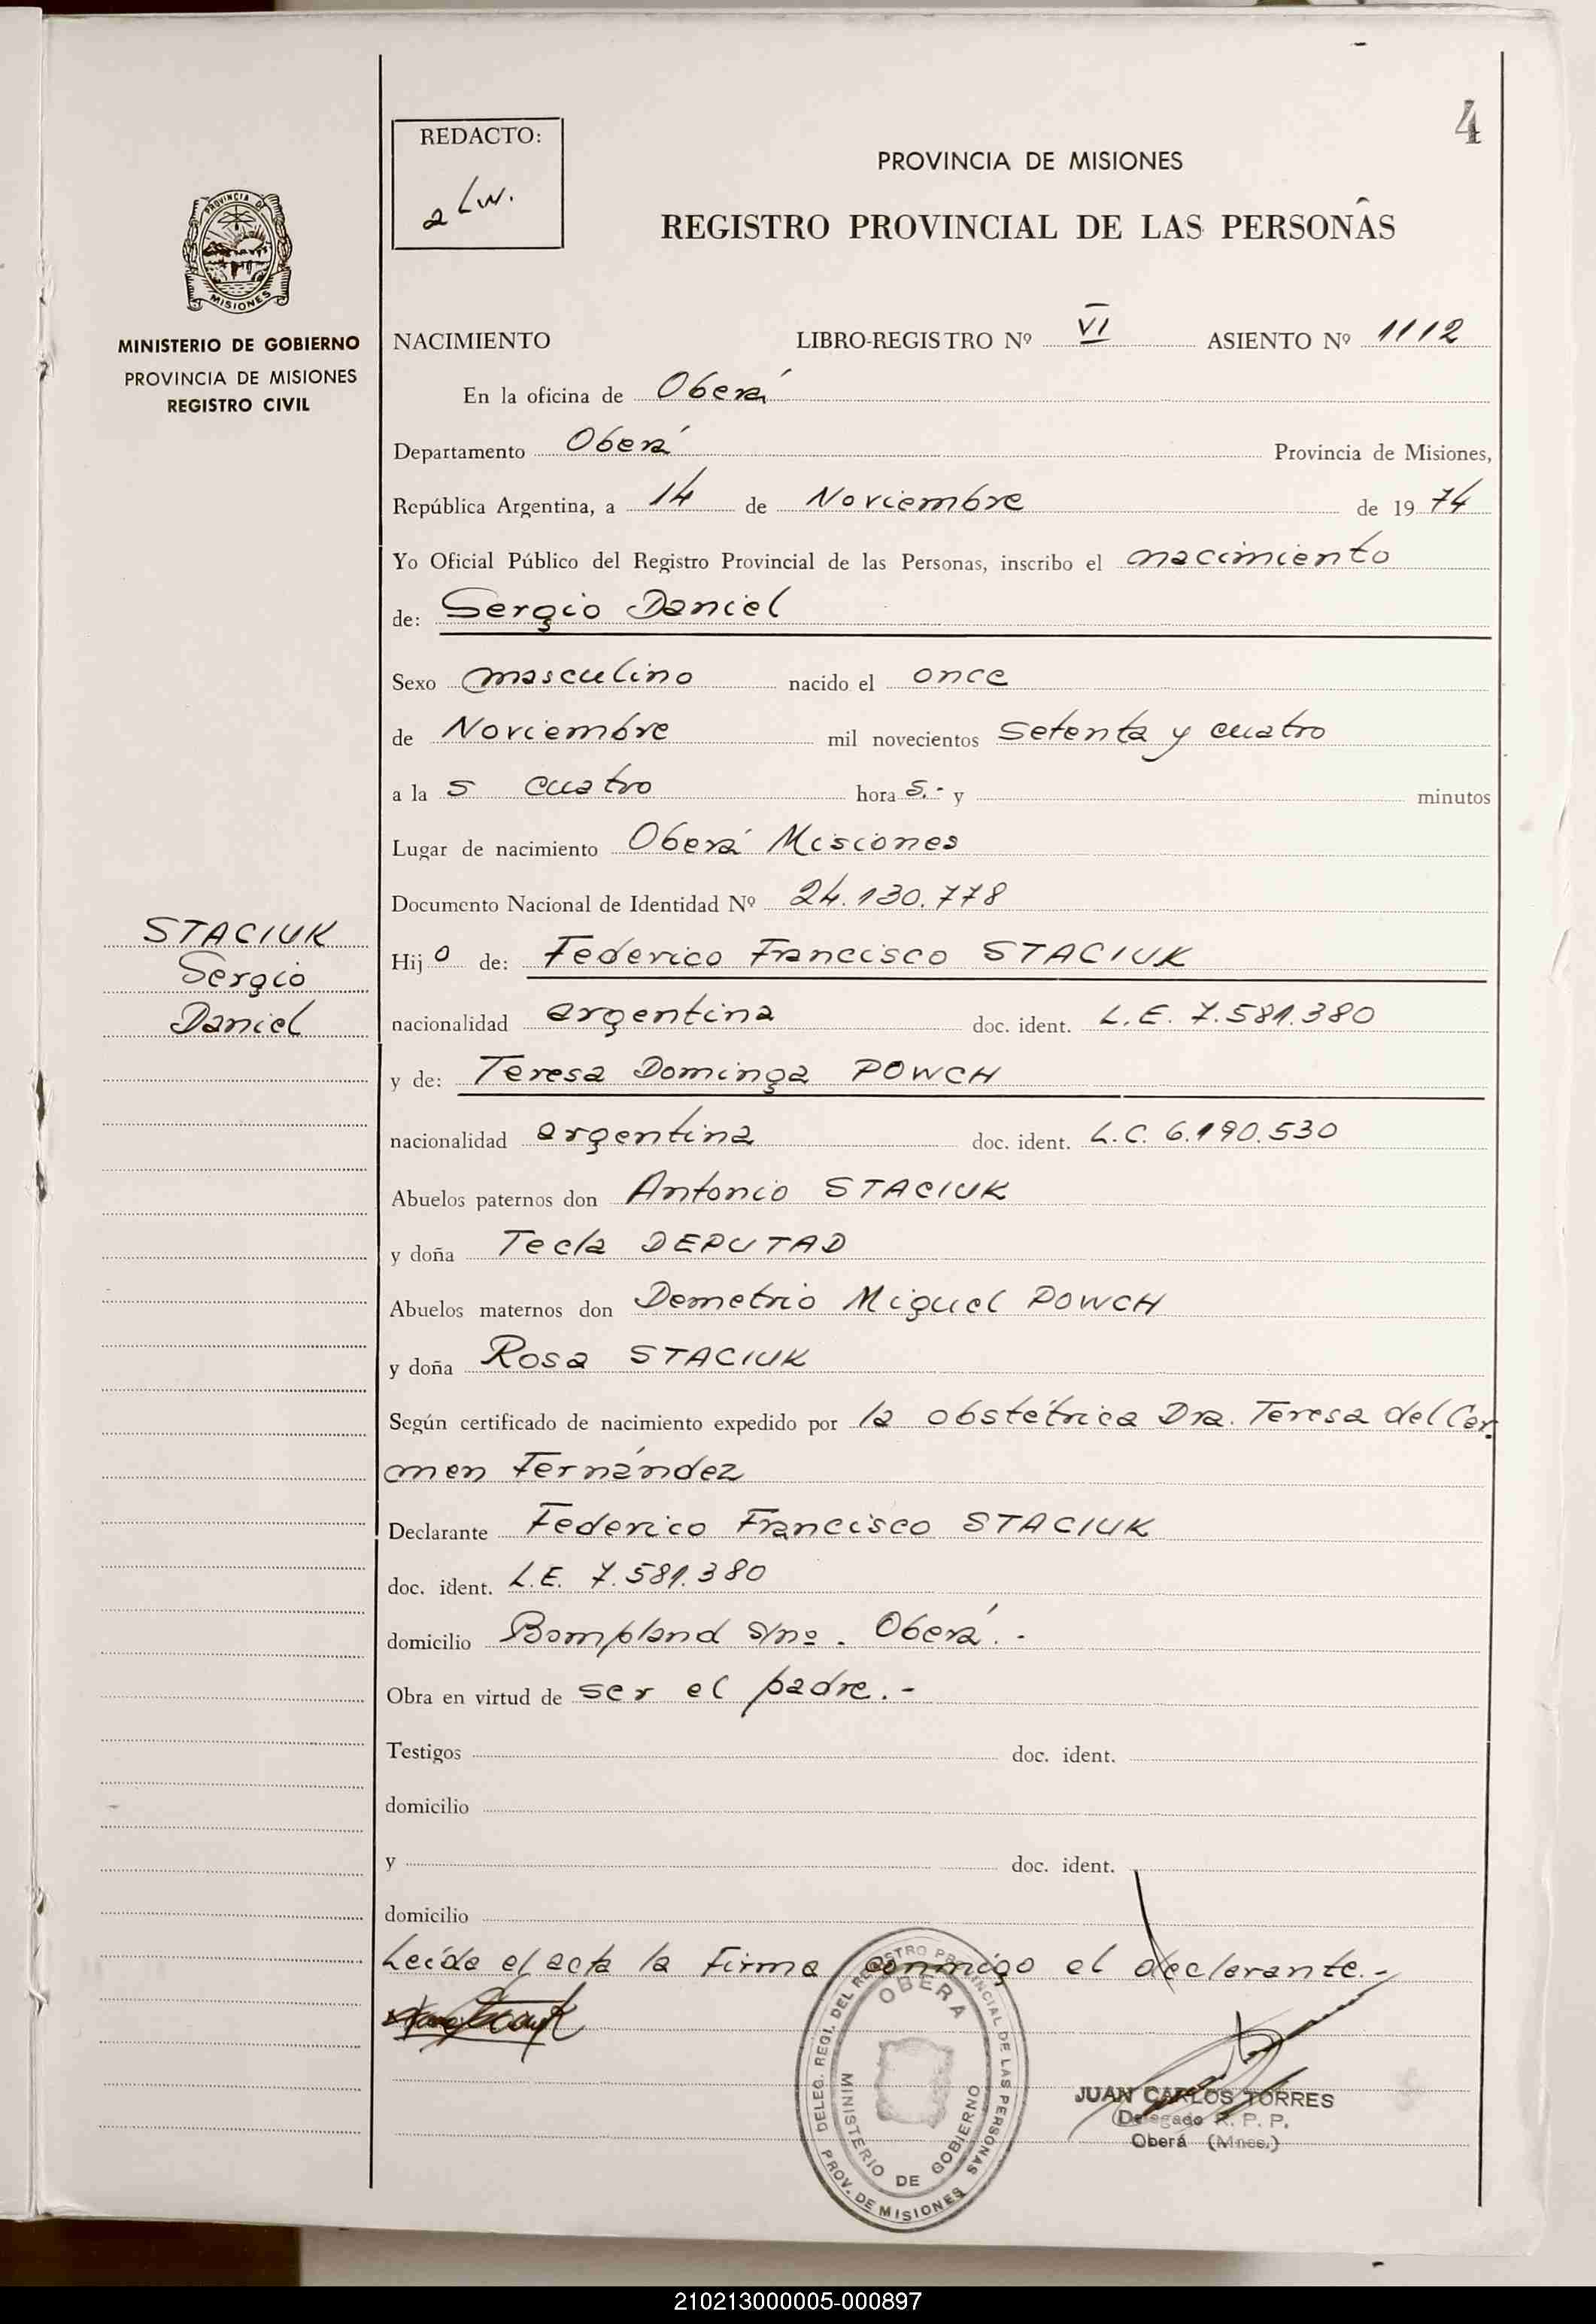 4
REDACTO:
PROVINCIA DE MISIONES
REGISTRO PROVINCIAL DE LAS PERSONAS
PROVINCIA DE
MISIONES
MINISTERIO DE GOBIERNO
PROVINCIA DE MISIONES
REGISTRO CIVIL
NACIMIENTO LIBRO-REGISTRO Nº VI ASIENTO Nº 1112
En la oficina de Oberá
Departamento Oberá Provincia de Misiones,
República Argentina, a 14 de Noviembre de 1974
Yo Oficial Público del Registro Provincial de las Personas, inscribo el nacimiento
de: Sergio Daniel
Sexo masculino nacido el once
de Noviembre mil novecientos setenta y cuatro
a la s cuatro hora s.- y minutos
Lugar de nacimiento Oberá Misiones
Documento Nacional de Identidad Nº 24.130.778
STACIUK
Sergio
Daniel
Hijo de: Federico Francisco STACIUK
nacionalidad argentina doc. ident. L.E. 7.581.380
y de: Teresa Dominga POWCH
nacionalidad argentina doc. ident. L.C. 6.190.530
Abuelos paternos don Antonio STACIUK
y doña Tecla DEPUTAD
Abuelos maternos don Demetrio Miguel POWCH
y doña Rosa STACIUK
Según certificado de nacimiento expedido por la obstétrica Dra. Teresa del Car
men Fernández
Declarante Federico Francisco STACIUK
doc. ident. L.E. 7.581.380
domicilio Bompland s/nº. Oberá.-
Obra en virtud de ser el padre.-
Testigos doc. ident.
domicilio
y doc. ident.
domicilio
Leída el acta la firma conmigo el declarante.-
DELEG. REGI. DEL REGISTRO PROVINCIAL DE LAS PERSONAS
OBERA
MINISTERIO DE GOBIERNO
PROV. DE MISIONES
JUAN CARLOS TORRES
Delegado R. P. P.
Oberá (Mnes.)
210213000005-000897